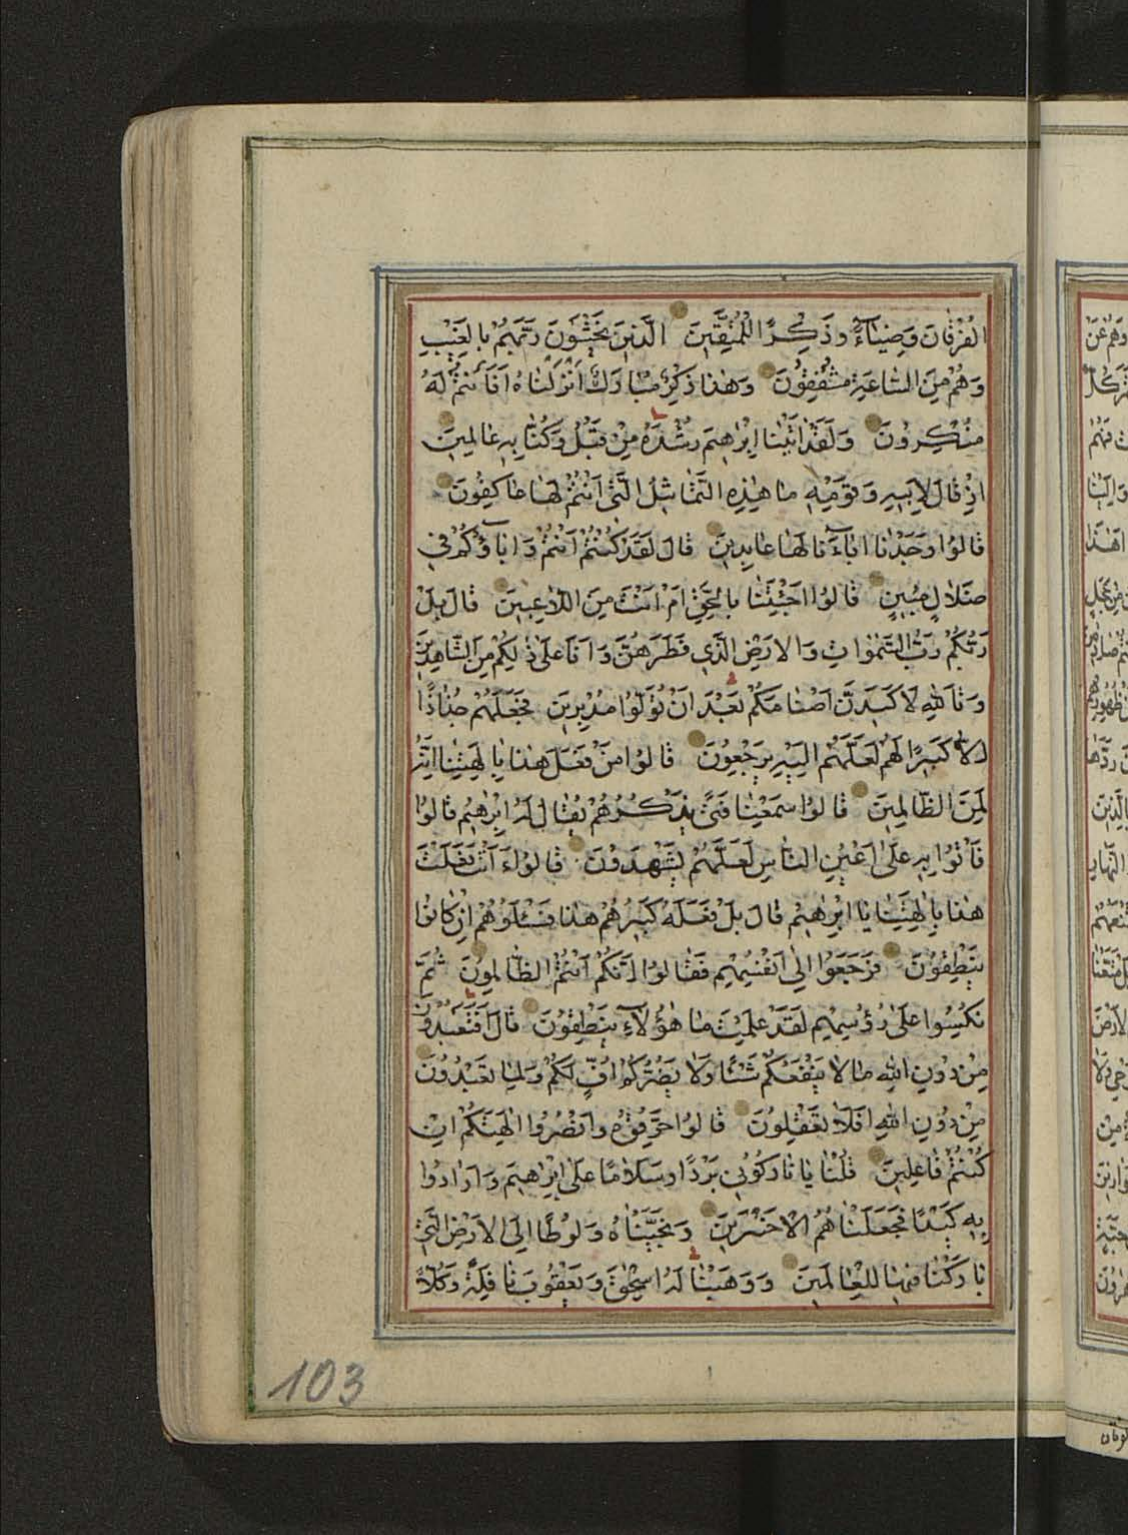 الْفُرْقَانَ وَضِيَاءً وَذِكْرًا لِلْمُتَّقِينَ الَّذِينَ يَخْشَوْنَ رَبَّهُمْ بِالْغَيْبِ
وَهُمْ مِنَ السَّاعَةِ مُشْفِقُونَ وَهٰذَا ذِكْرٌ مُبَارَكٌ أَنْزَلْنَاهُ أَفَأَنْتُمْ لَهُ
مُنْكِرُونَ وَلَقَدْ اٰتَيْنَا إِبْرٰهِيمَ رُشْدَهُ مِنْ قَبْلُ وَكُنَّا بِهِ عَالِمِينَ
إِذْ قَالَ لِأَبِيهِ وَقَوْمِهِ مَا هٰذِهِ التَّمَاثِيلُ الَّتِي أَنْتُمْ لَهَا عَاكِفُونَ
قَالُوا وَجَدْنَا اٰبَاءَنَا لَهَا عَابِدِينَ قَالَ لَقَدْ كُنْتُمْ أَنْتُمْ وَاٰبَاؤُكُمْ فِي
ضَلَالٍ مُبِينٍ قَالُوا أَجِئْتَنَا بِالْحَقِّ أَمْ أَنْتَ مِنَ اللَّاعِبِينَ قَالَ بَلْ
رَبُّكُمْ رَبُّ السَّمٰوَاتِ وَالْأَرْضِ الَّذِي فَطَرَهُنَّ وَأَنَا عَلَىٰ ذٰلِكُمْ مِنَ الشَّاهِدِينَ
وَتَاللّٰهِ لَأَكِيدَنَّ أَصْنَامَكُمْ بَعْدَ أَنْ تُوَلُّوا مُدْبِرِينَ فَجَعَلَهُمْ جُذَاذًا
إِلَّا كَبِيرًا لَهُمْ لَعَلَّهُمْ إِلَيْهِ يَرْجِعُونَ قَالُوا مَنْ فَعَلَ هٰذَا بِاٰلِهَتِنَا إِنَّهُ
لَمِنَ الظَّالِمِينَ قَالُوا سَمِعْنَا فَتًى يَذْكُرُهُمْ يُقَالُ لَهُ إِبْرٰهِيمُ قَالُوا
فَأْتُوا بِهِ عَلَىٰ أَعْيُنِ النَّاسِ لَعَلَّهُمْ يَشْهَدُونَ قَالُوا ءَأَنْتَ فَعَلْتَ
هٰذَا بِاٰلِهَتِنَا يَا إِبْرٰهِيمُ قَالَ بَلْ فَعَلَهُ كَبِيرُهُمْ هٰذَا فَسْئَلُوهُمْ إِنْ كَانُوا
يَنْطِقُونَ فَرَجَعُوا إِلَىٰ أَنْفُسِهِمْ فَقَالُوا إِنَّكُمْ أَنْتُمُ الظَّالِمُونَ ثُمَّ
نُكِسُوا عَلَىٰ رُؤُسِهِمْ لَقَدْ عَلِمْتَ مَا هٰؤُلَاءِ يَنْطِقُونَ قَالَ أَفَتَعْبُدُونَ
مِنْ دُونِ اللّٰهِ مَا لَا يَنْفَعُكُمْ شَيْئًا وَلَا يَضُرُّكُمْ أُفٍّ لَكُمْ وَلِمَا تَعْبُدُونَ
مِنْ دُونِ اللّٰهِ أَفَلَا تَعْقِلُونَ قَالُوا حَرِّقُوهُ وَانْصُرُوا اٰلِهَتَكُمْ إِنْ
كُنْتُمْ فَاعِلِينَ قُلْنَا يَا نَارُ كُونِي بَرْدًا وَسَلَامًا عَلَىٰ إِبْرٰهِيمَ وَأَرَادُوا
بِهِ كَيْدًا فَجَعَلْنَاهُمُ الْأَخْسَرِينَ وَنَجَّيْنَاهُ وَلُوطًا إِلَى الْأَرْضِ الَّتِي
بَارَكْنَا فِيهَا لِلْعَالَمِينَ وَوَهَبْنَا لَهُ إِسْحٰقَ وَيَعْقُوبَ نَافِلَةً وَكُلًّا
103